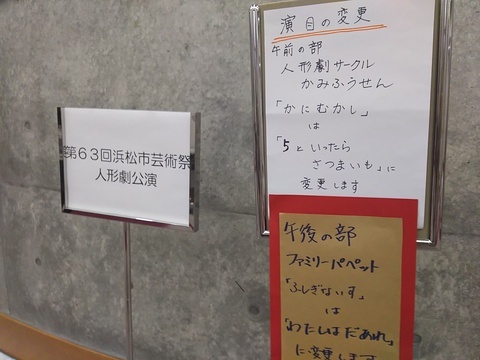 第63回浜松市芸術祭
人形劇公演
演目の変更
午前の部
人形劇サークル
かみふうせん
「かにむかし」
は
「5といったら
さつまいも」に
変更します
午後の部
ファミリーパペット
「ふしぎないす」
は
「わたしはだあれ」
に変更します